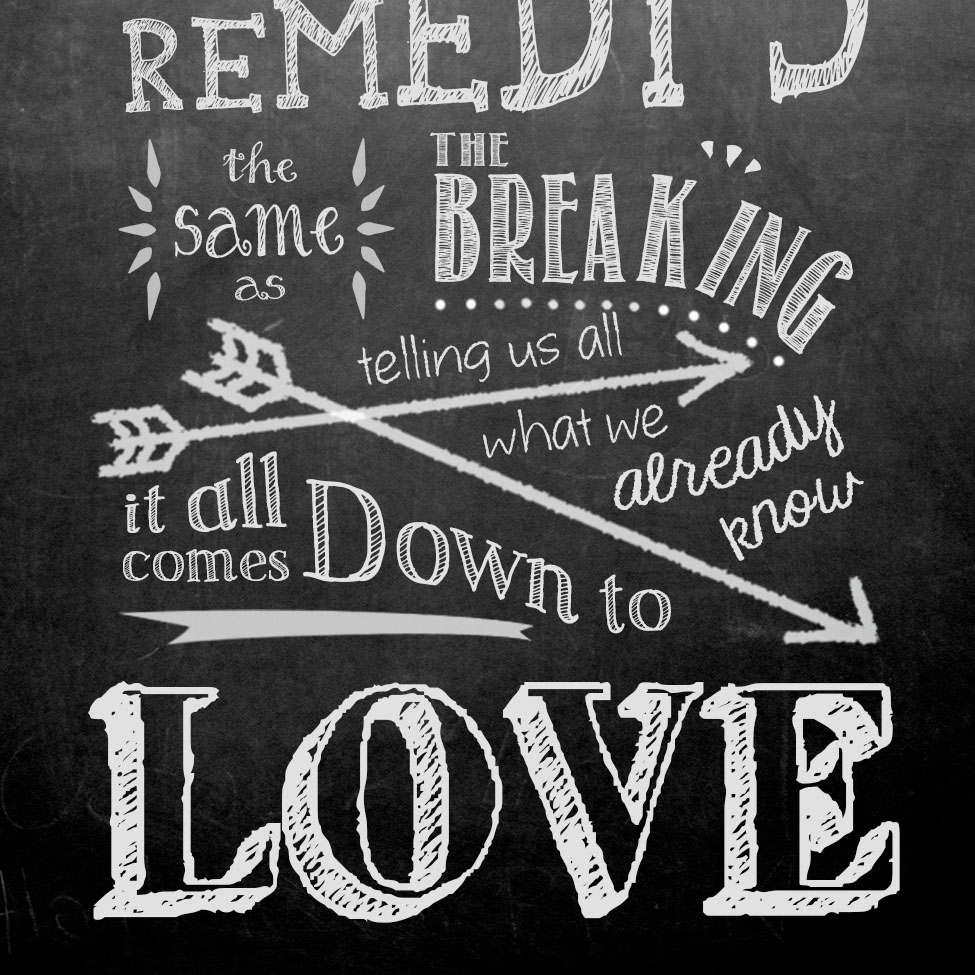 REMEDY'S
the
same
as
THE
BREAKING
telling us all
what we
already
know
it all
comes Down to
LOVE